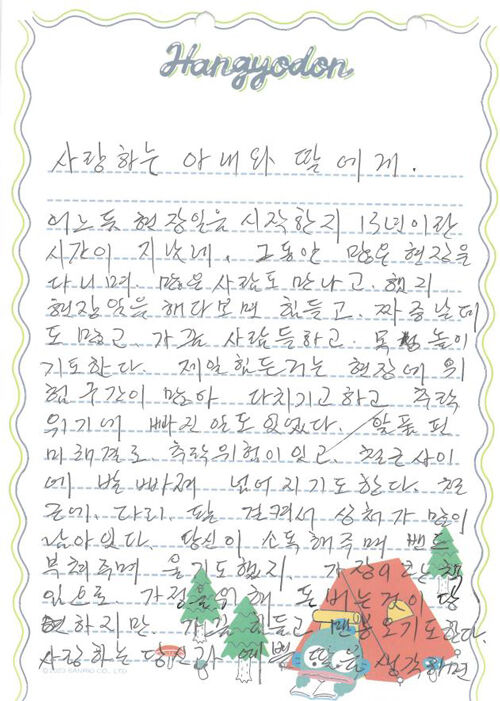 Hangyodon
사랑하는 아내와 딸에게.
어느듯 현장일을 시작한지 13년이란
시간이 지났네. 그동안 많은 현장을
다니며. 많은 사람도 만나고. 했지
현장일을 해다보면 힘들고. 짜증날때
도 많고. 가끔 사람들하고. 목 놀이
기도한다. 제일힘든거는 현장에 위
험구간이 많아 다치기고하고 추락
위기에 빠진안도있었다. 핀
마해결로. 추락위험이있고. 철근사이
에 발빠져 넘어지기도한다. 철
근에. 다리. 팔 걸려서 상처가 많이
남아있다. 당신이 소독해주며 밴드
부쳐주며 울기도했지. 가장이란 책
임으로. 가정을위해 돈버는것이 당
연하지만 가끔 힘들고 만용오기도한다.
사랑하는 당신과 예쁜 딸을 생각하면
©2023 SANRIO CO., LTD